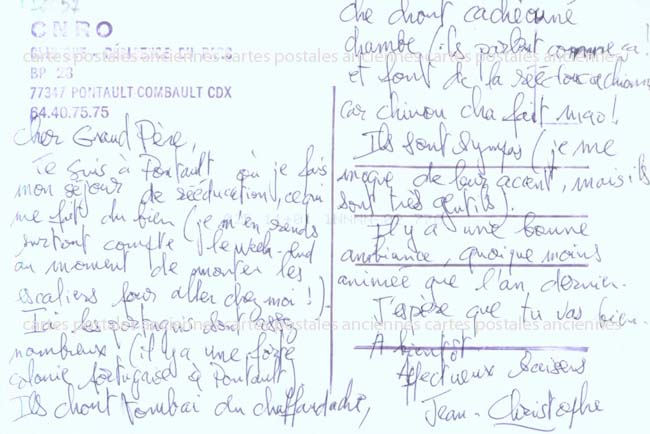 CNRO
BP 23
77347 PONTAULT COMBAULT CDX
64.40.75.75
Cher Grand Père,
Je suis à Pontault où je fais
mon séjour de rééducation, ce qui
me fait du bien (je m'en rends
surtout compte le week-end
au moment de monter les
escaliers pour aller chez moi !).
Ici les portugais sont assez
nombreux (il y a une forte
colonie portugaise à Pontault)
Ils chont tombai du chaffardache,
che chont cach
chambe (ils parlent comme ça !
et font de la
car chinon cha fait mao !
Ils sont sympas (je me
moque de leur accent, mais ils
sont très gentils).
Il y a une bonne
ambiance, quoique moins
animée que l'an dernier.
J'espère que tu vas bien.
A bientôt
Affectueux baisers
Jean-Christophe
cartes postales anciennes cartes postales anciennes cartes postales anciennes
cartes postales anciennes cartes postales anciennes cartes postales anciennes